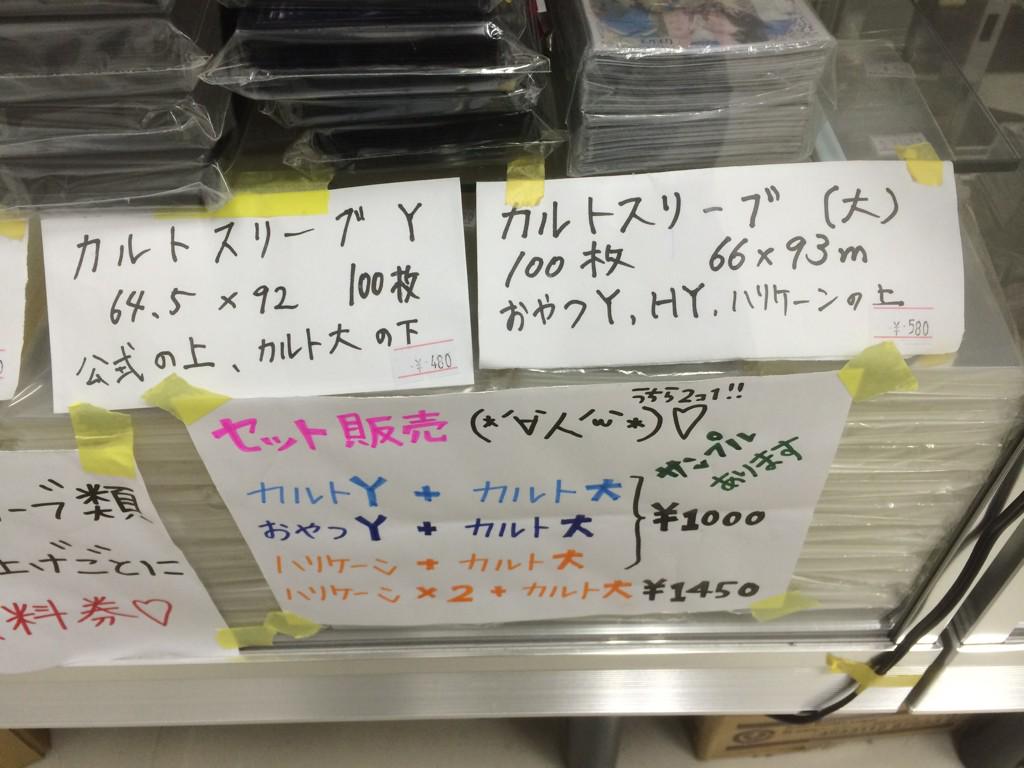 カルトスリーブY
64.5 × 92 100枚
公式の上、カルト大の下
¥480
カルトスリーブ (大)
100枚 66×93m
おやつY, HY, ハリケーンの上
¥580
セット販売 (*´∀人´ω`*)♡
サンプル
あります
カルトY + カルト大
おやつY + カルト大
ハリケーン + カルト大
¥1000
ハリケーン×2 + カルト大 ¥1450
ーブ類
上げごとに
料券♡